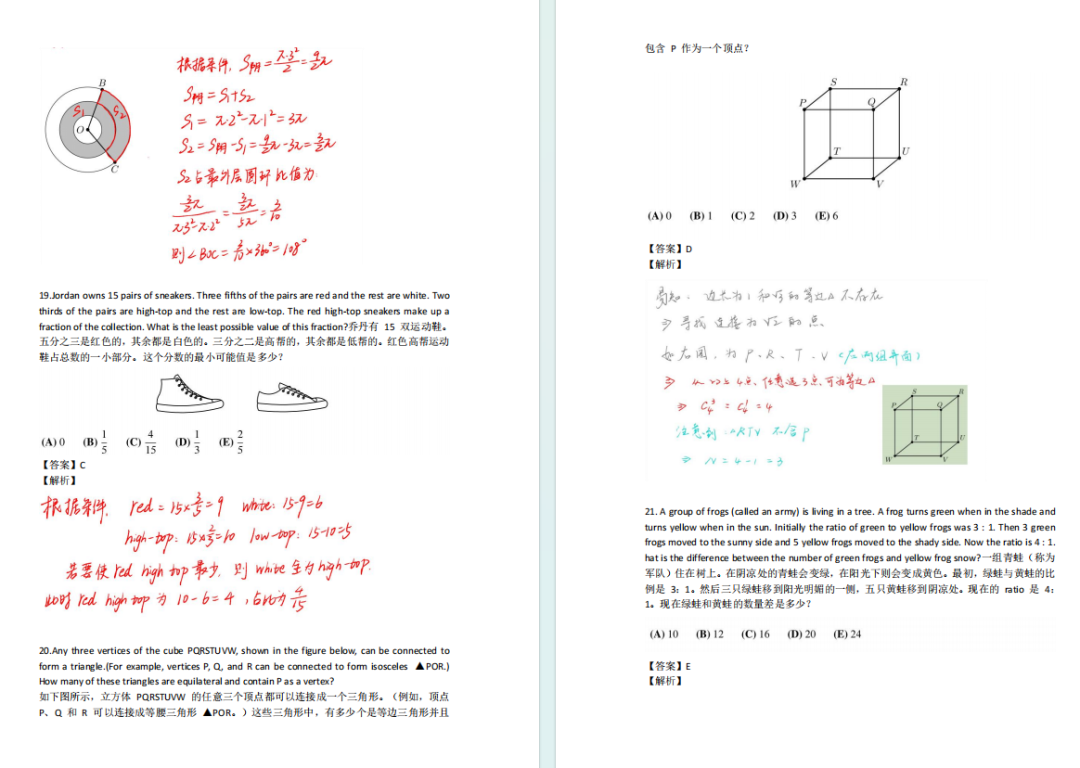 B
S₁
S₂
O
C
根据条件, S阴 = π·3²/2 = 9/2π
S阴 = S₁+S₂
S₁ = π·2²-π·1² = 3π
S₂ = S阴-S₁ = 9/2π-3π = 3/2π
S₂占最外层圆环比值为
3/2π/π3²-π·2² = 3/2π/5π = 3/10
则∠BOC = 3/10×360° = 108°
19.Jordan owns 15 pairs of sneakers. Three fifths of the pairs are red and the rest are white. Two
thirds of the pairs are high-top and the rest are low-top. The red high-top sneakers make up a
fraction of the collection. What is the least possible value of this fraction?乔丹有 15 双运动鞋。
五分之三是红色的，其余都是白色的。三分之二是高帮的，其余都是低帮的。红色高帮运动
鞋占总数的一小部分。这个分数的最小可能值是多少？
(A) 0 (B) 1/5 (C) 4/15 (D) 1/3 (E) 2/5
【答案】C
【解析】
根据条件, red = 15×3/5 = 9 white: 15-9=6
high-top: 15×2/3=10 low-top: 15-10=5
若要使 red high top 最少, 则 white 全为 high-top.
此时 red high top 为 10-6=4 , 占比为 4/15
20.Any three vertices of the cube PQRSTUVW, shown in the figure below, can be connected to
form a triangle.(For example, vertices P, Q, and R can be connected to form isosceles ▲POR.)
How many of these triangles are equilateral and contain P as a vertex?
如下图所示，立方体 PQRSTUVW 的任意三个顶点都可以连接成一个三角形。（例如，顶点
P、Q 和 R 可以连接成等腰三角形 ▲POR。）这些三角形中，有多少个是等边三角形并且
包含 P 作为一个顶点？
S
R
P
Q
T
U
W
V
(A) 0 (B) 1 (C) 2 (D) 3 (E) 6
【答案】D
【解析】
易知: 边长为 1 和√3 的等边△ 不存在
⇒ 寻找 连接为 √2 的点
如右图, 为 P、R、T、V (后两组平面)
⇒ 以以上4点, 任意选3点, 可为等边△
⇒ C₄³ = C₄¹ = 4
注意到: △RTV 不含P
⇒ N = 4-1 = 3
S
R
P
Q
T
U
W
V
21. A group of frogs (called an army) is living in a tree. A frog turns green when in the shade and
turns yellow when in the sun. Initially the ratio of green to yellow frogs was 3 : 1. Then 3 green
frogs moved to the sunny side and 5 yellow frogs moved to the shady side. Now the ratio is 4 : 1.
hat is the difference between the number of green frogs and yellow frog snow?一组青蛙（称为
军队）住在树上。在阴凉处的青蛙会变绿，在阳光下则会变成黄色。最初，绿蛙与黄蛙的比
例是 3: 1。然后三只绿蛙移到阳光明媚的一侧，五只黄蛙移到阴凉处。现在的 ratio 是 4:
1。现在绿蛙和黄蛙的数量差是多少？
(A) 10 (B) 12 (C) 16 (D) 20 (E) 24
【答案】E
【解析】